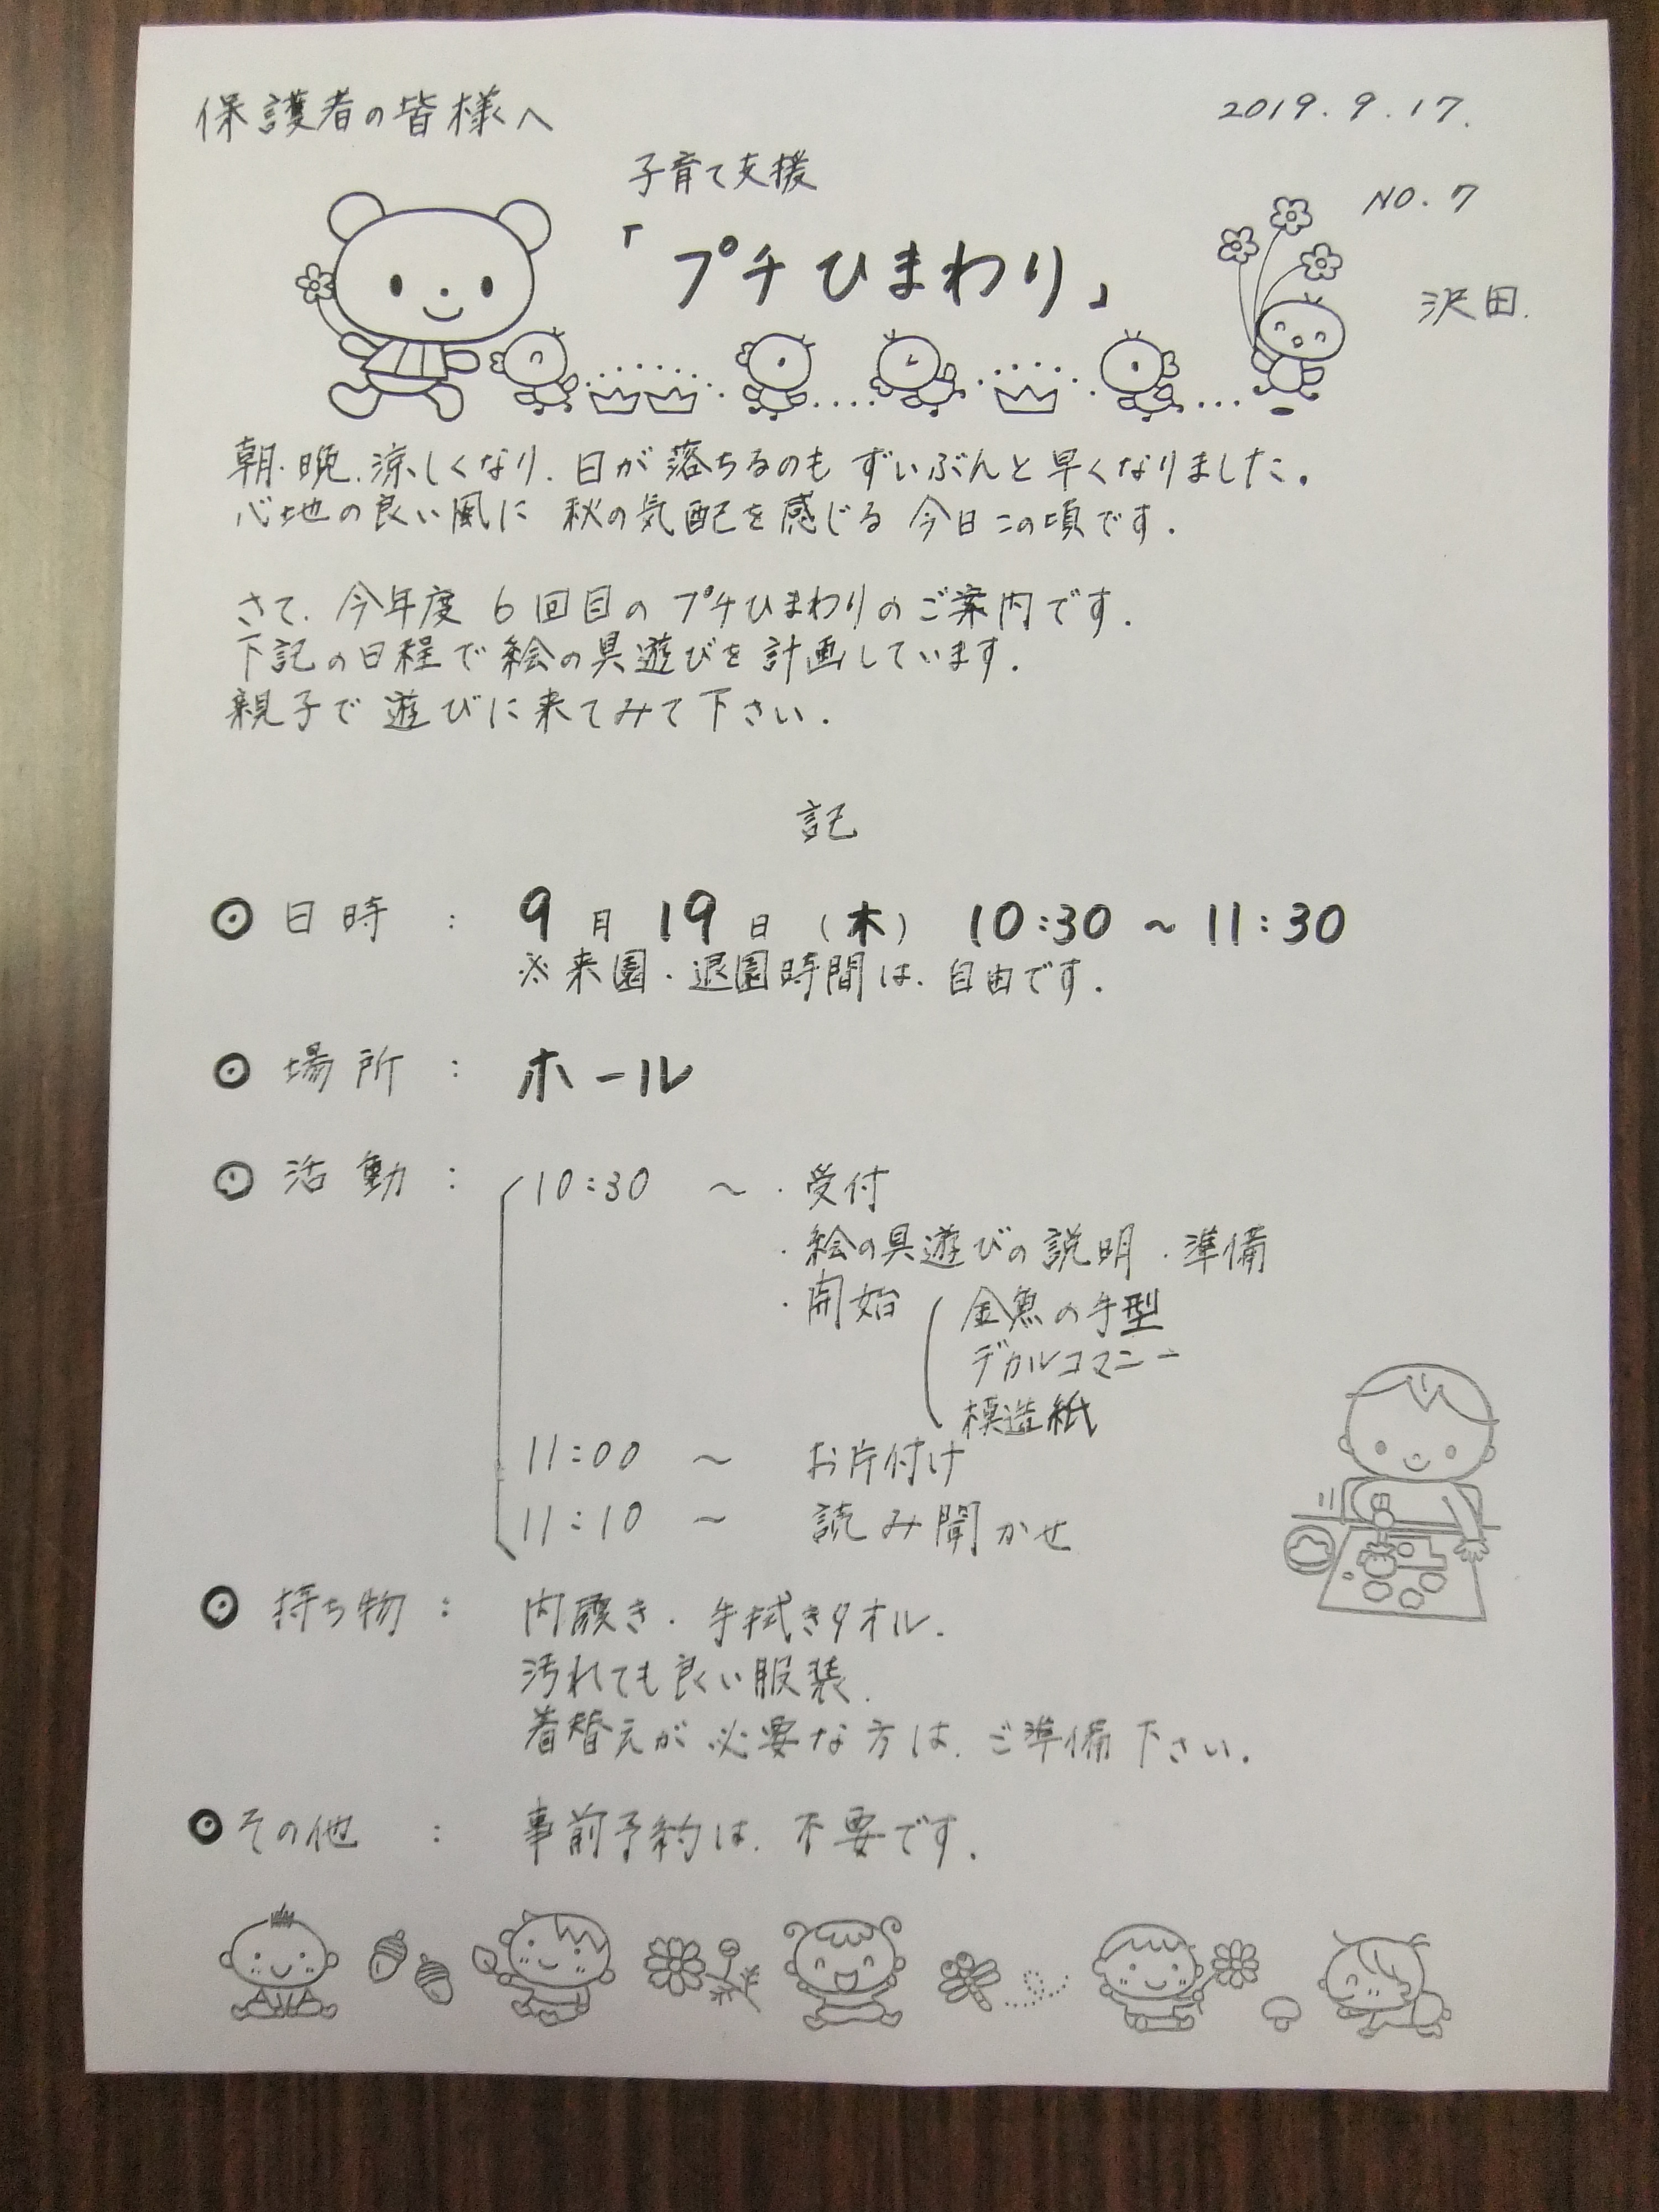 保護者の皆様へ
2019.9.17.
子育て支援
NO.7
「プチひまわり」
沢田.
朝・晩、涼しくなり、日が落ちるのもずいぶんと早くなりました。
心地の良い風に 秋の気配を感じる 今日この頃です.
さて、今年度 6回目の プチひまわりのご案内です.
下記の日程で絵の具遊びを計画しています.
親子で遊びに来てみて下さい.
記
⊙ 日時 : 9月19日(木) 10:30～11:30
※来園・退園時間は、自由です.
⊙ 場所 : ホール
⊙ 活動 : 10:30 ～ ・受付
・絵の具遊びの説明・準備
・開始 金魚の手型
デカルコマニー
模造紙
11:00 ～ お片付け
11:10 ～ 読み聞かせ
⊙ 持ち物 : 内履き・手拭きタオル.
汚れても良い服装.
着替えが必要な方は、ご準備下さい.
⊙ その他 : 事前予約は、不要です.